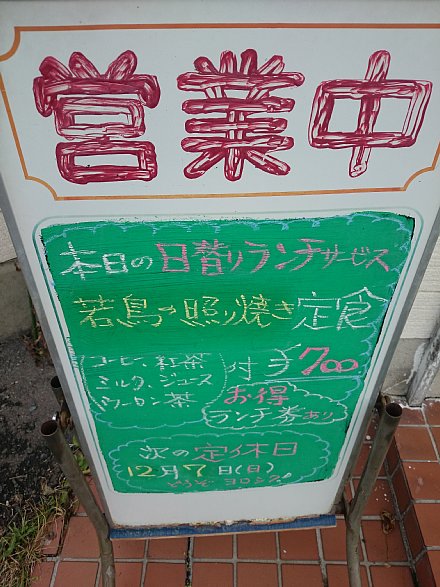 営業中
本日の日替りランチサービス
若鳥の照焼き定食
コーヒー、紅茶
ミルク、ジュース
ウーロン茶
付 ¥700
お得
ランチ券あり
次の定休日
12月7日(日)
どうぞヨロシク。